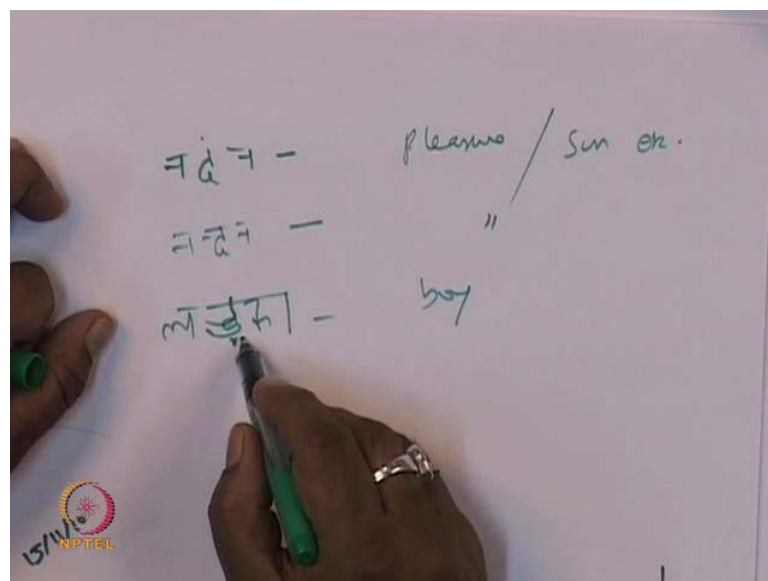 नदंन - pleasure / Sun etc.
नन्दन - "
लड़का - boy
15/11/10
NPTEL